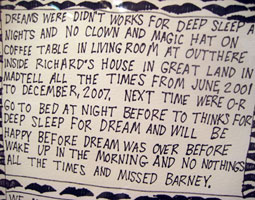 DREAMS WERE DIDN'T WORKS FOR DEEP SLEEP A
NIGHTS AND NO CLOWN AND MAGIC HAT ON
COFFEE TABLE IN LIVING ROOM AT OUTTHERE
INSIDE RICHARD'S HOUSE IN GREAT LAND IN
MADTELL ALL THE TIMES FROM JUNE, 2001
TO DECEMBER, 2007. NEXT TIME WERE O-R
GO TO BED AT NIGHT BEFORE TO THINKS FOR
DEEP SLEEP FOR DREAM AND WILL BE
HAPPY BEFORE DREAM WAS OVER BEFORE
WAKE UP IN THE MORNING AND NO NOTHINGS
ALL THE TIMES AND MISSED BARNEY.